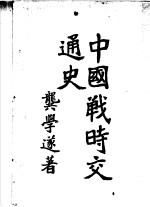 中國戰時交
通史
龔學遂著